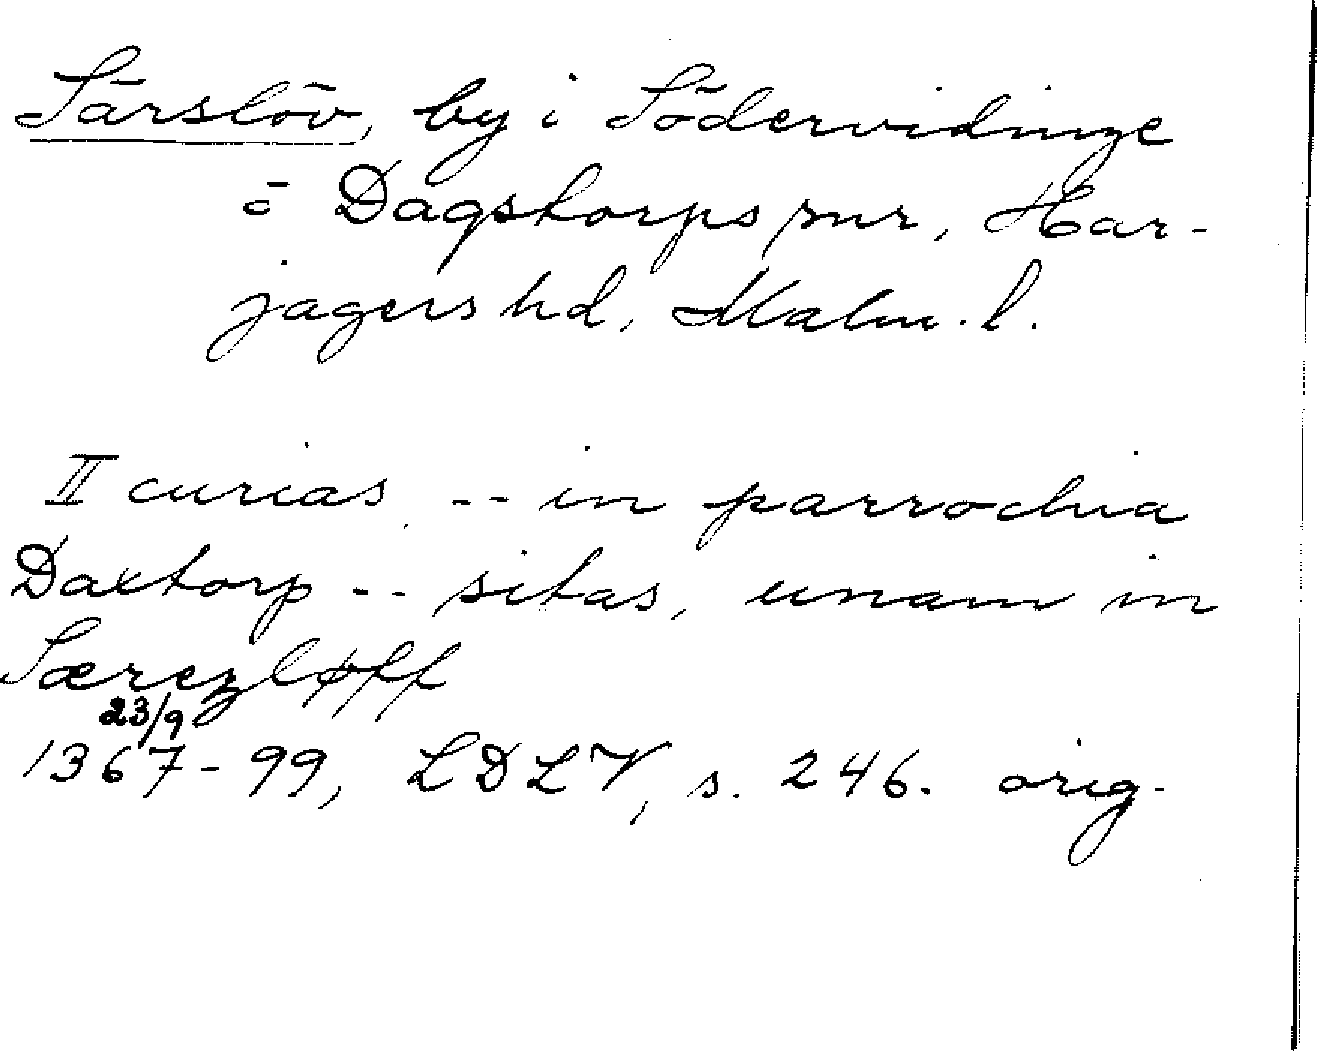 Särslöv, by i Södervidinge
o Dagstorps snr, Har-
jagers hd, Malm. l.
II curias -- in parrochia
Daxtorp -- sitas, unam in
Særezløff
23/9
1367-99, LDLV, s. 246. orig.